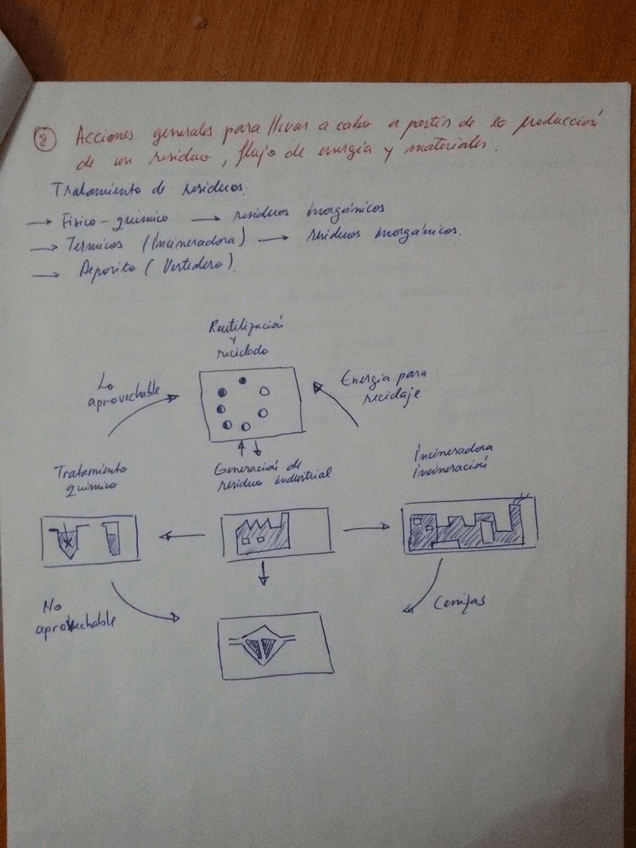 8 Acciones generales para llevar a cabo a partir de la producción
de un residuo, flujo de energía y materiales.
Tratamiento de residuos.
→ Físico-químico → residuos inorgánicos
→ Térmicos (Incineradora) → residuos inorgánicos.
→ Deposito (Vertedero).
Reutilización
y
reciclado
Lo
aprovechable
Energía para
reciclaje
Tratamiento
químico
Generación de
residuo industrial
Incineradora
Incineración
No
aprovechable
Cenizas